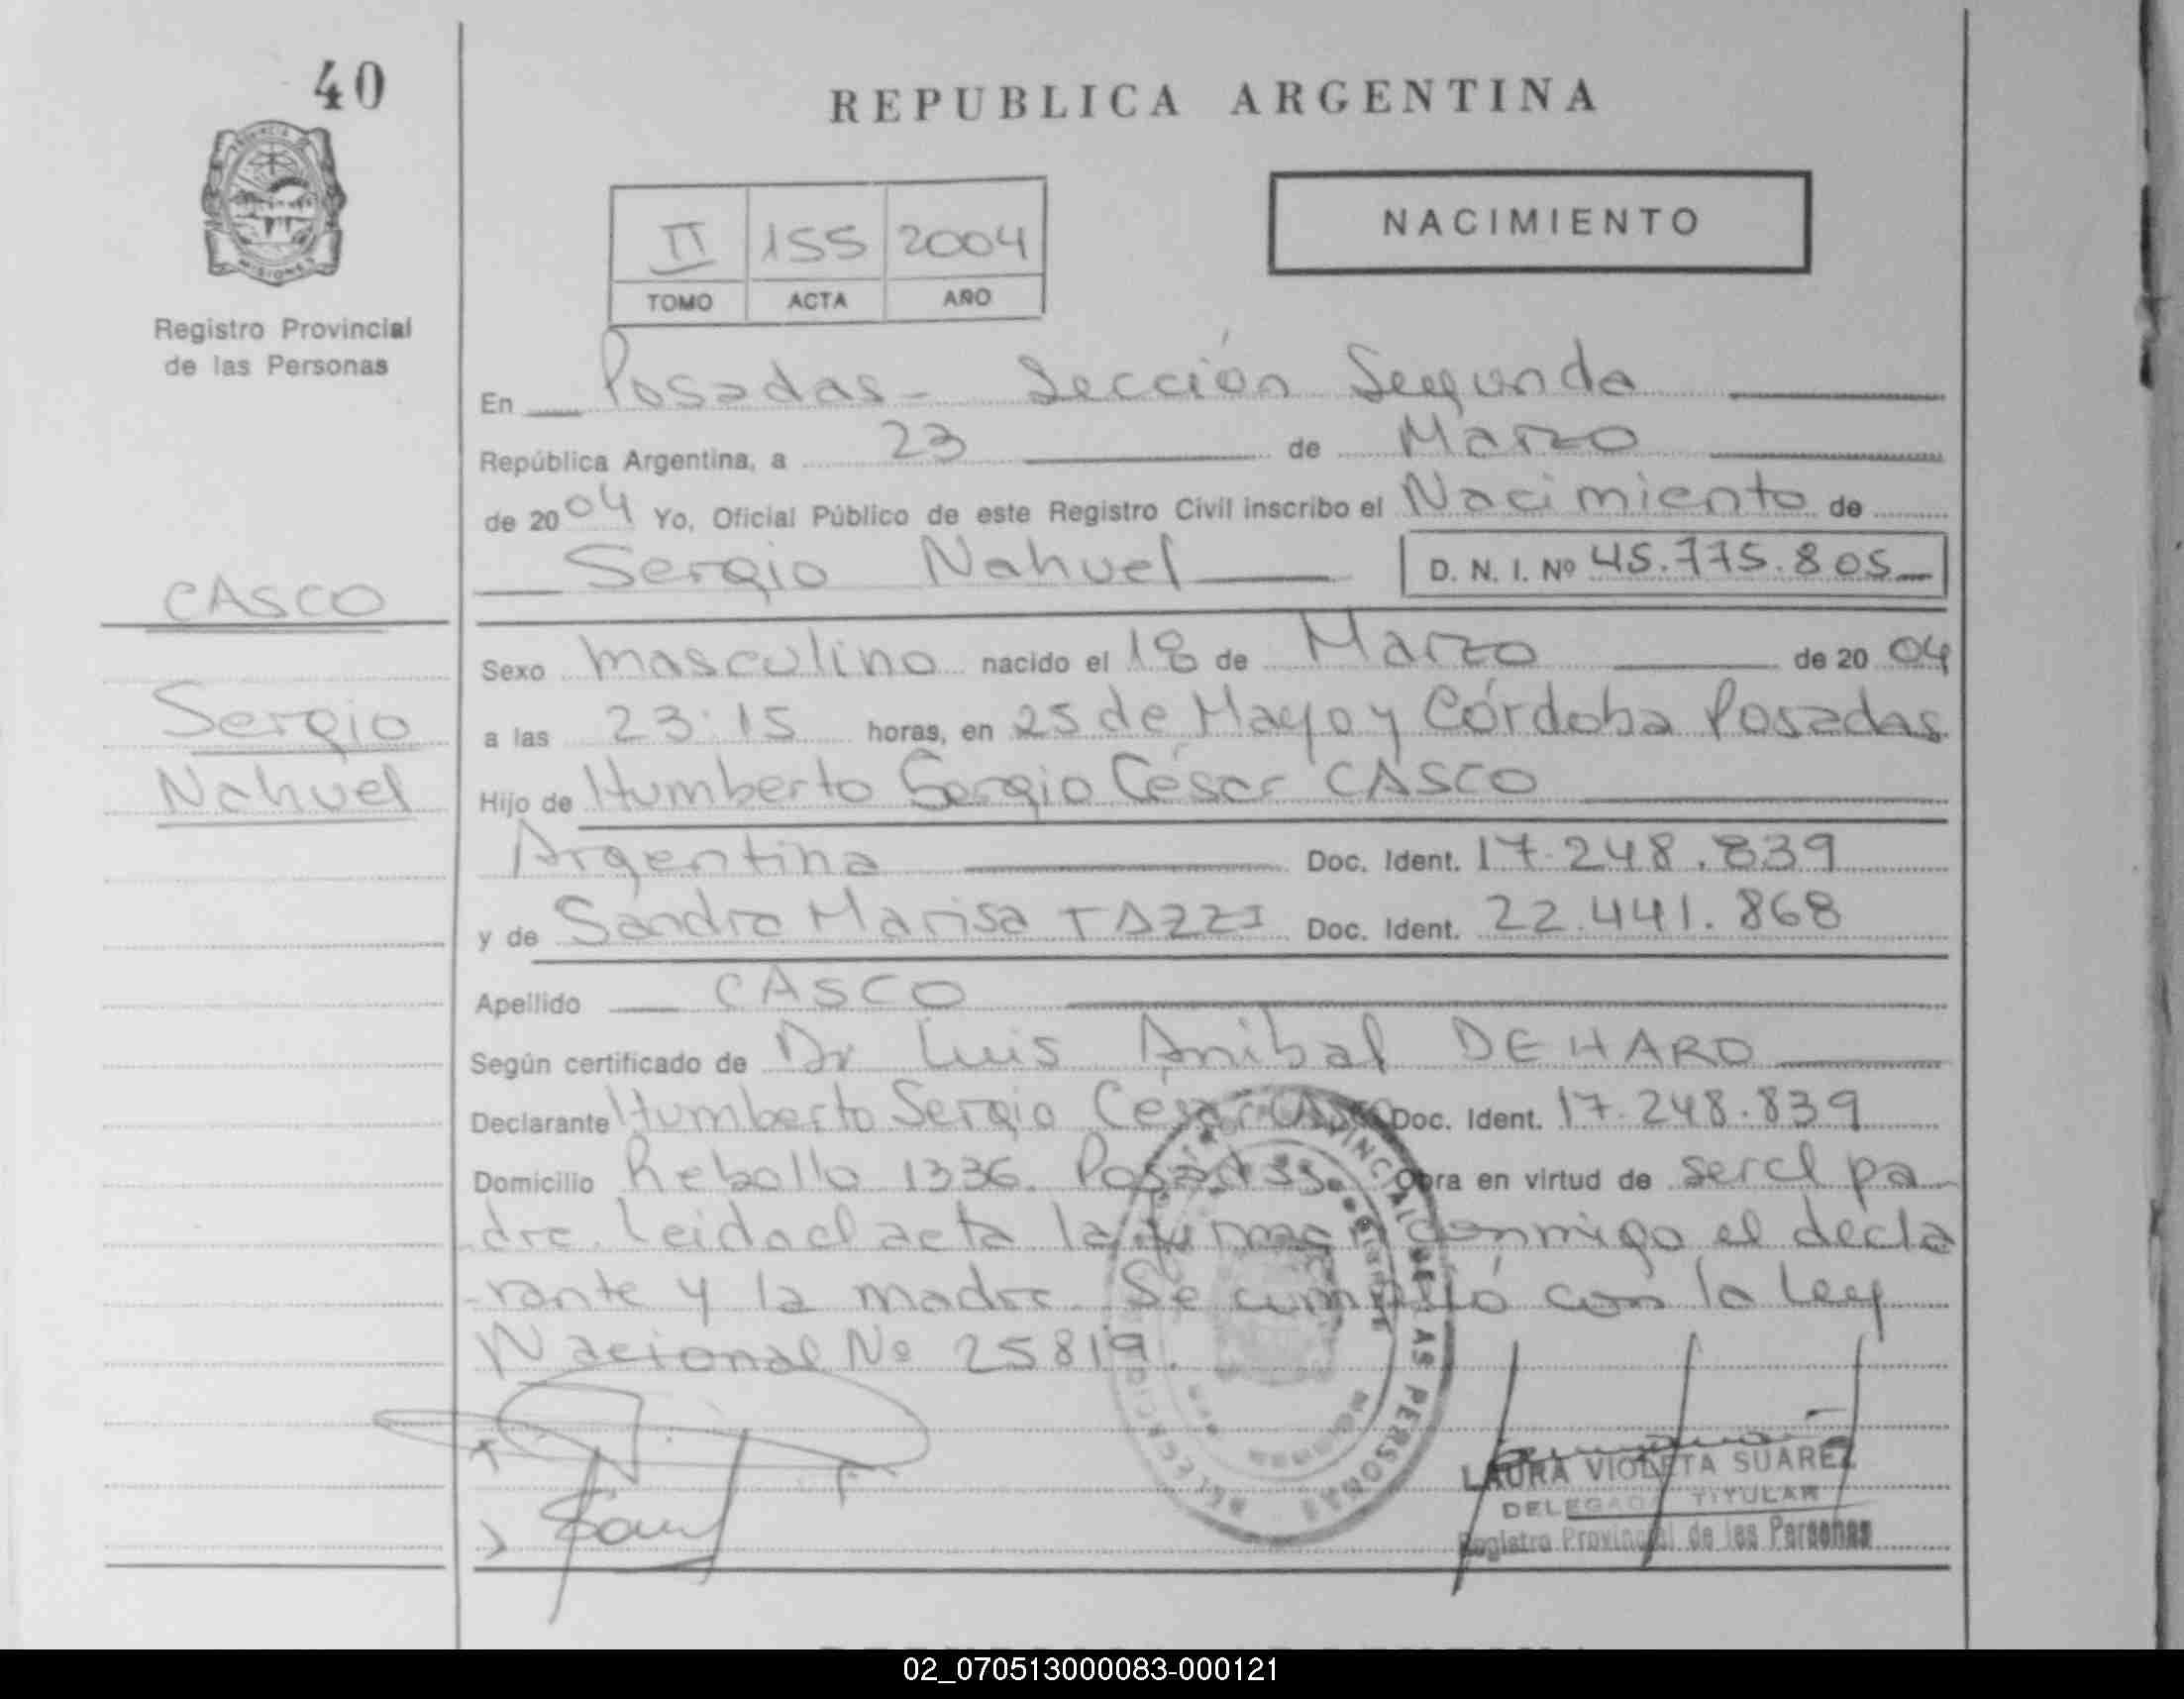 40
REPUBLICA ARGENTINA
NACIMIENTO
II 155 2004
TOMO ACTA AÑO
Registro Provincial
de las Personas
En Posadas - Sección Segunda
República Argentina, a 23 de Marzo
de 2004 Yo, Oficial Público de este Registro Civil inscribo el Nacimiento de
Sergio Nahuel D. N. I. Nº 45.775.805
CASCO
Sergio
Nahuel
Sexo masculino nacido el 18 de Marzo de 2004
a las 23:15 horas, en 25 de Mayo y Córdoba Posadas
Hijo de Humberto Sergio César CASCO
Argentina Doc. Ident. 17.248.839
y de Sandra Marisa TAZZI Doc. Ident. 22.441.868
Apellido CASCO
Según certificado de Dr Luis Anibal DE HARO
Declarante Humberto Sergio César Casco Doc. Ident. 17.248.839
Domicilio Rebollo 1336. Posadas. Obra en virtud de ser el pa-
dre. Leida el acta la firman conmigo el decla
-rante y la madre. Se cumplió con la Ley
Nacional Nº 25819.
LAURA VIOLETA SUAREZ
DELEGADA TITULAR
Registro Provincial de las Personas
02_070513000083-000121